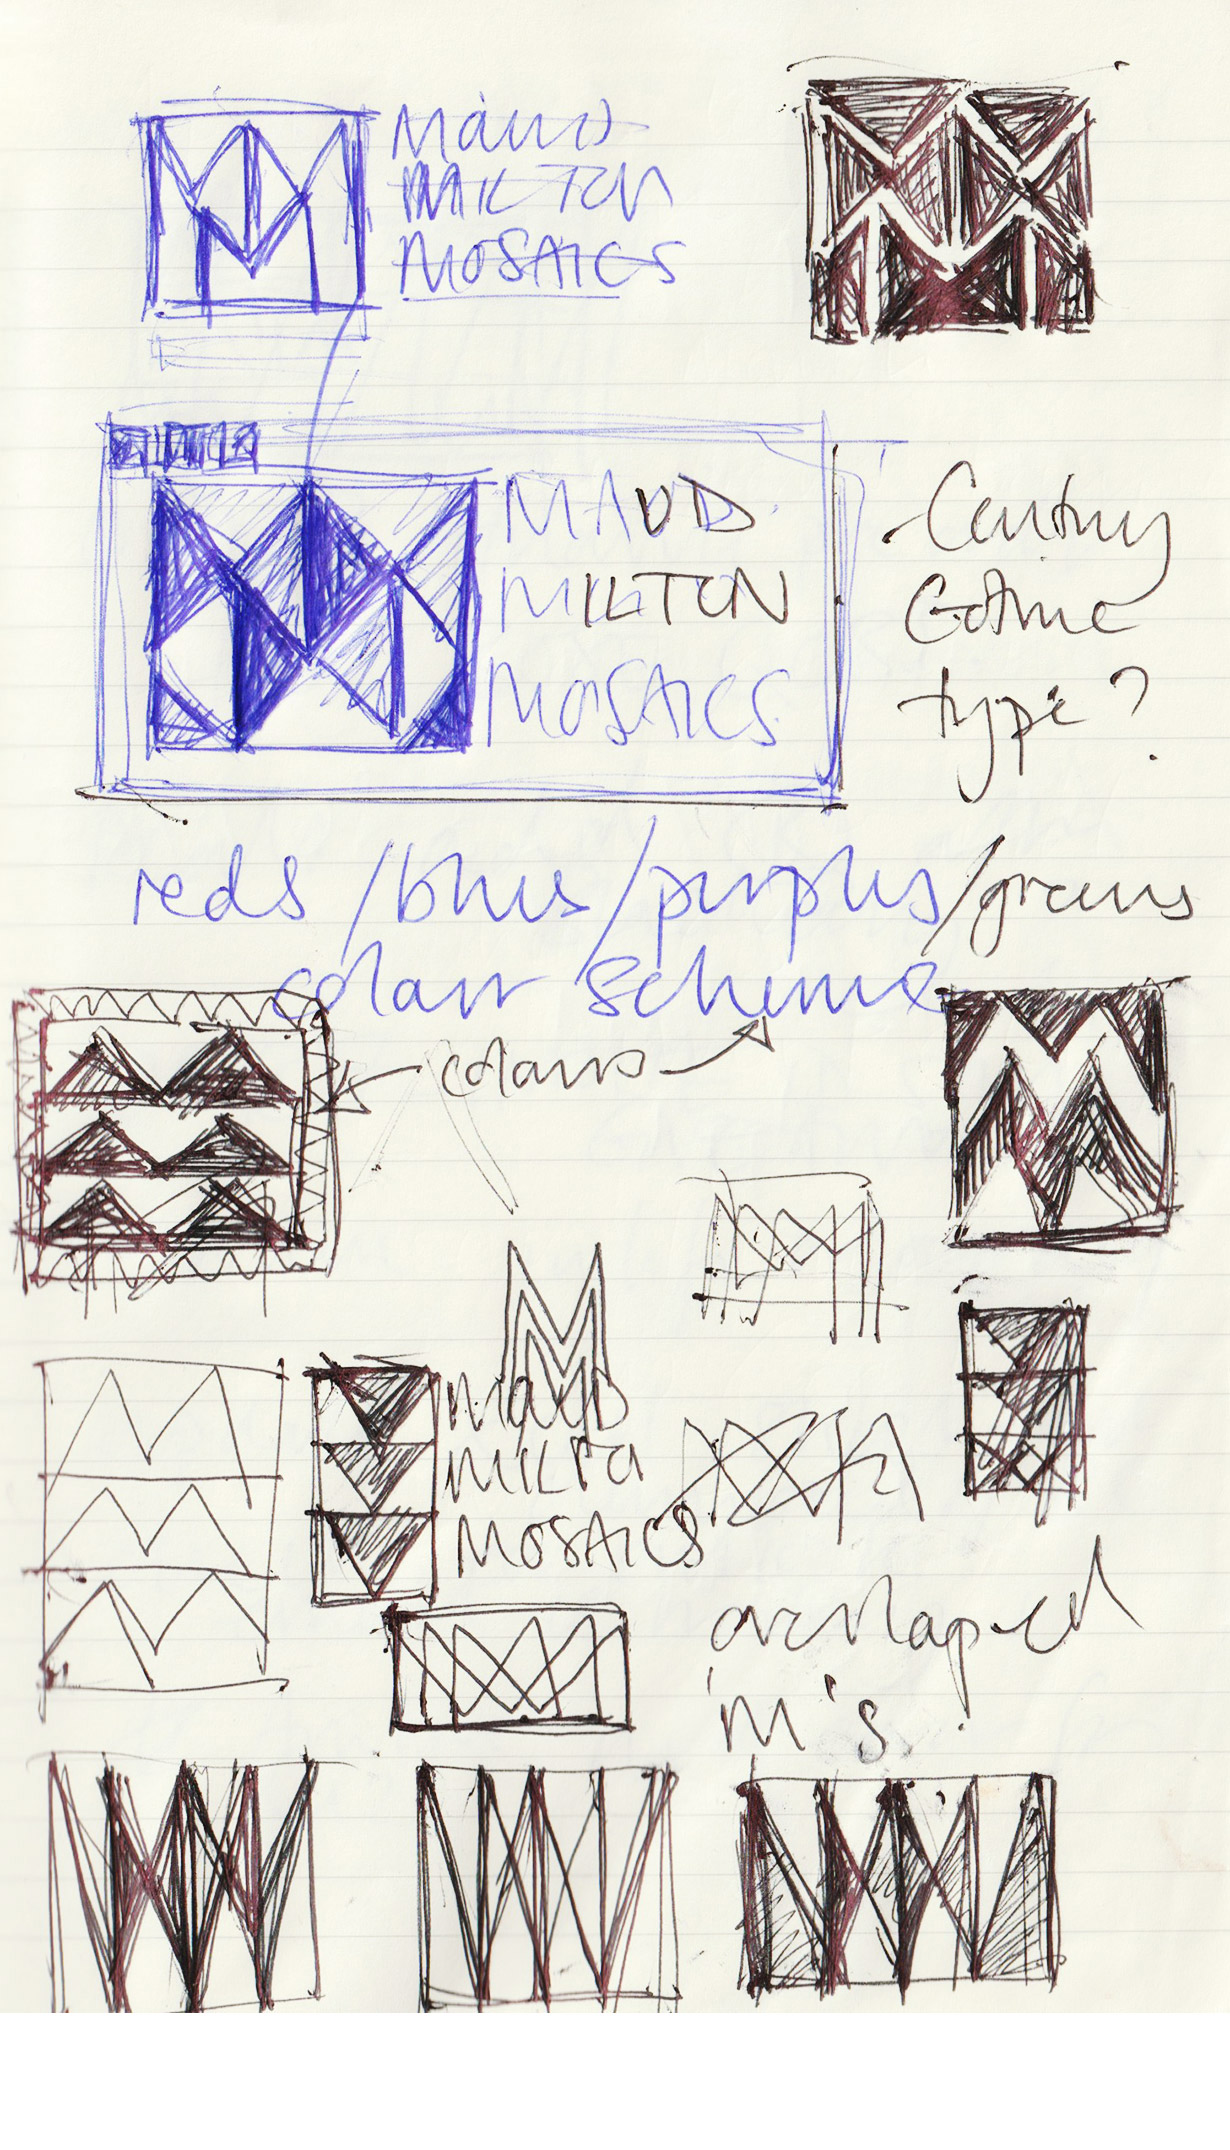 MAUD
MILTON
MOSAICS
MAUD
MILTON
MOSAICS
Century
Gothic
type?
reds/blues/purples/greens
colour scheme
colours
MAUD
MILTO
MOSAICS
overlapped
'm's.